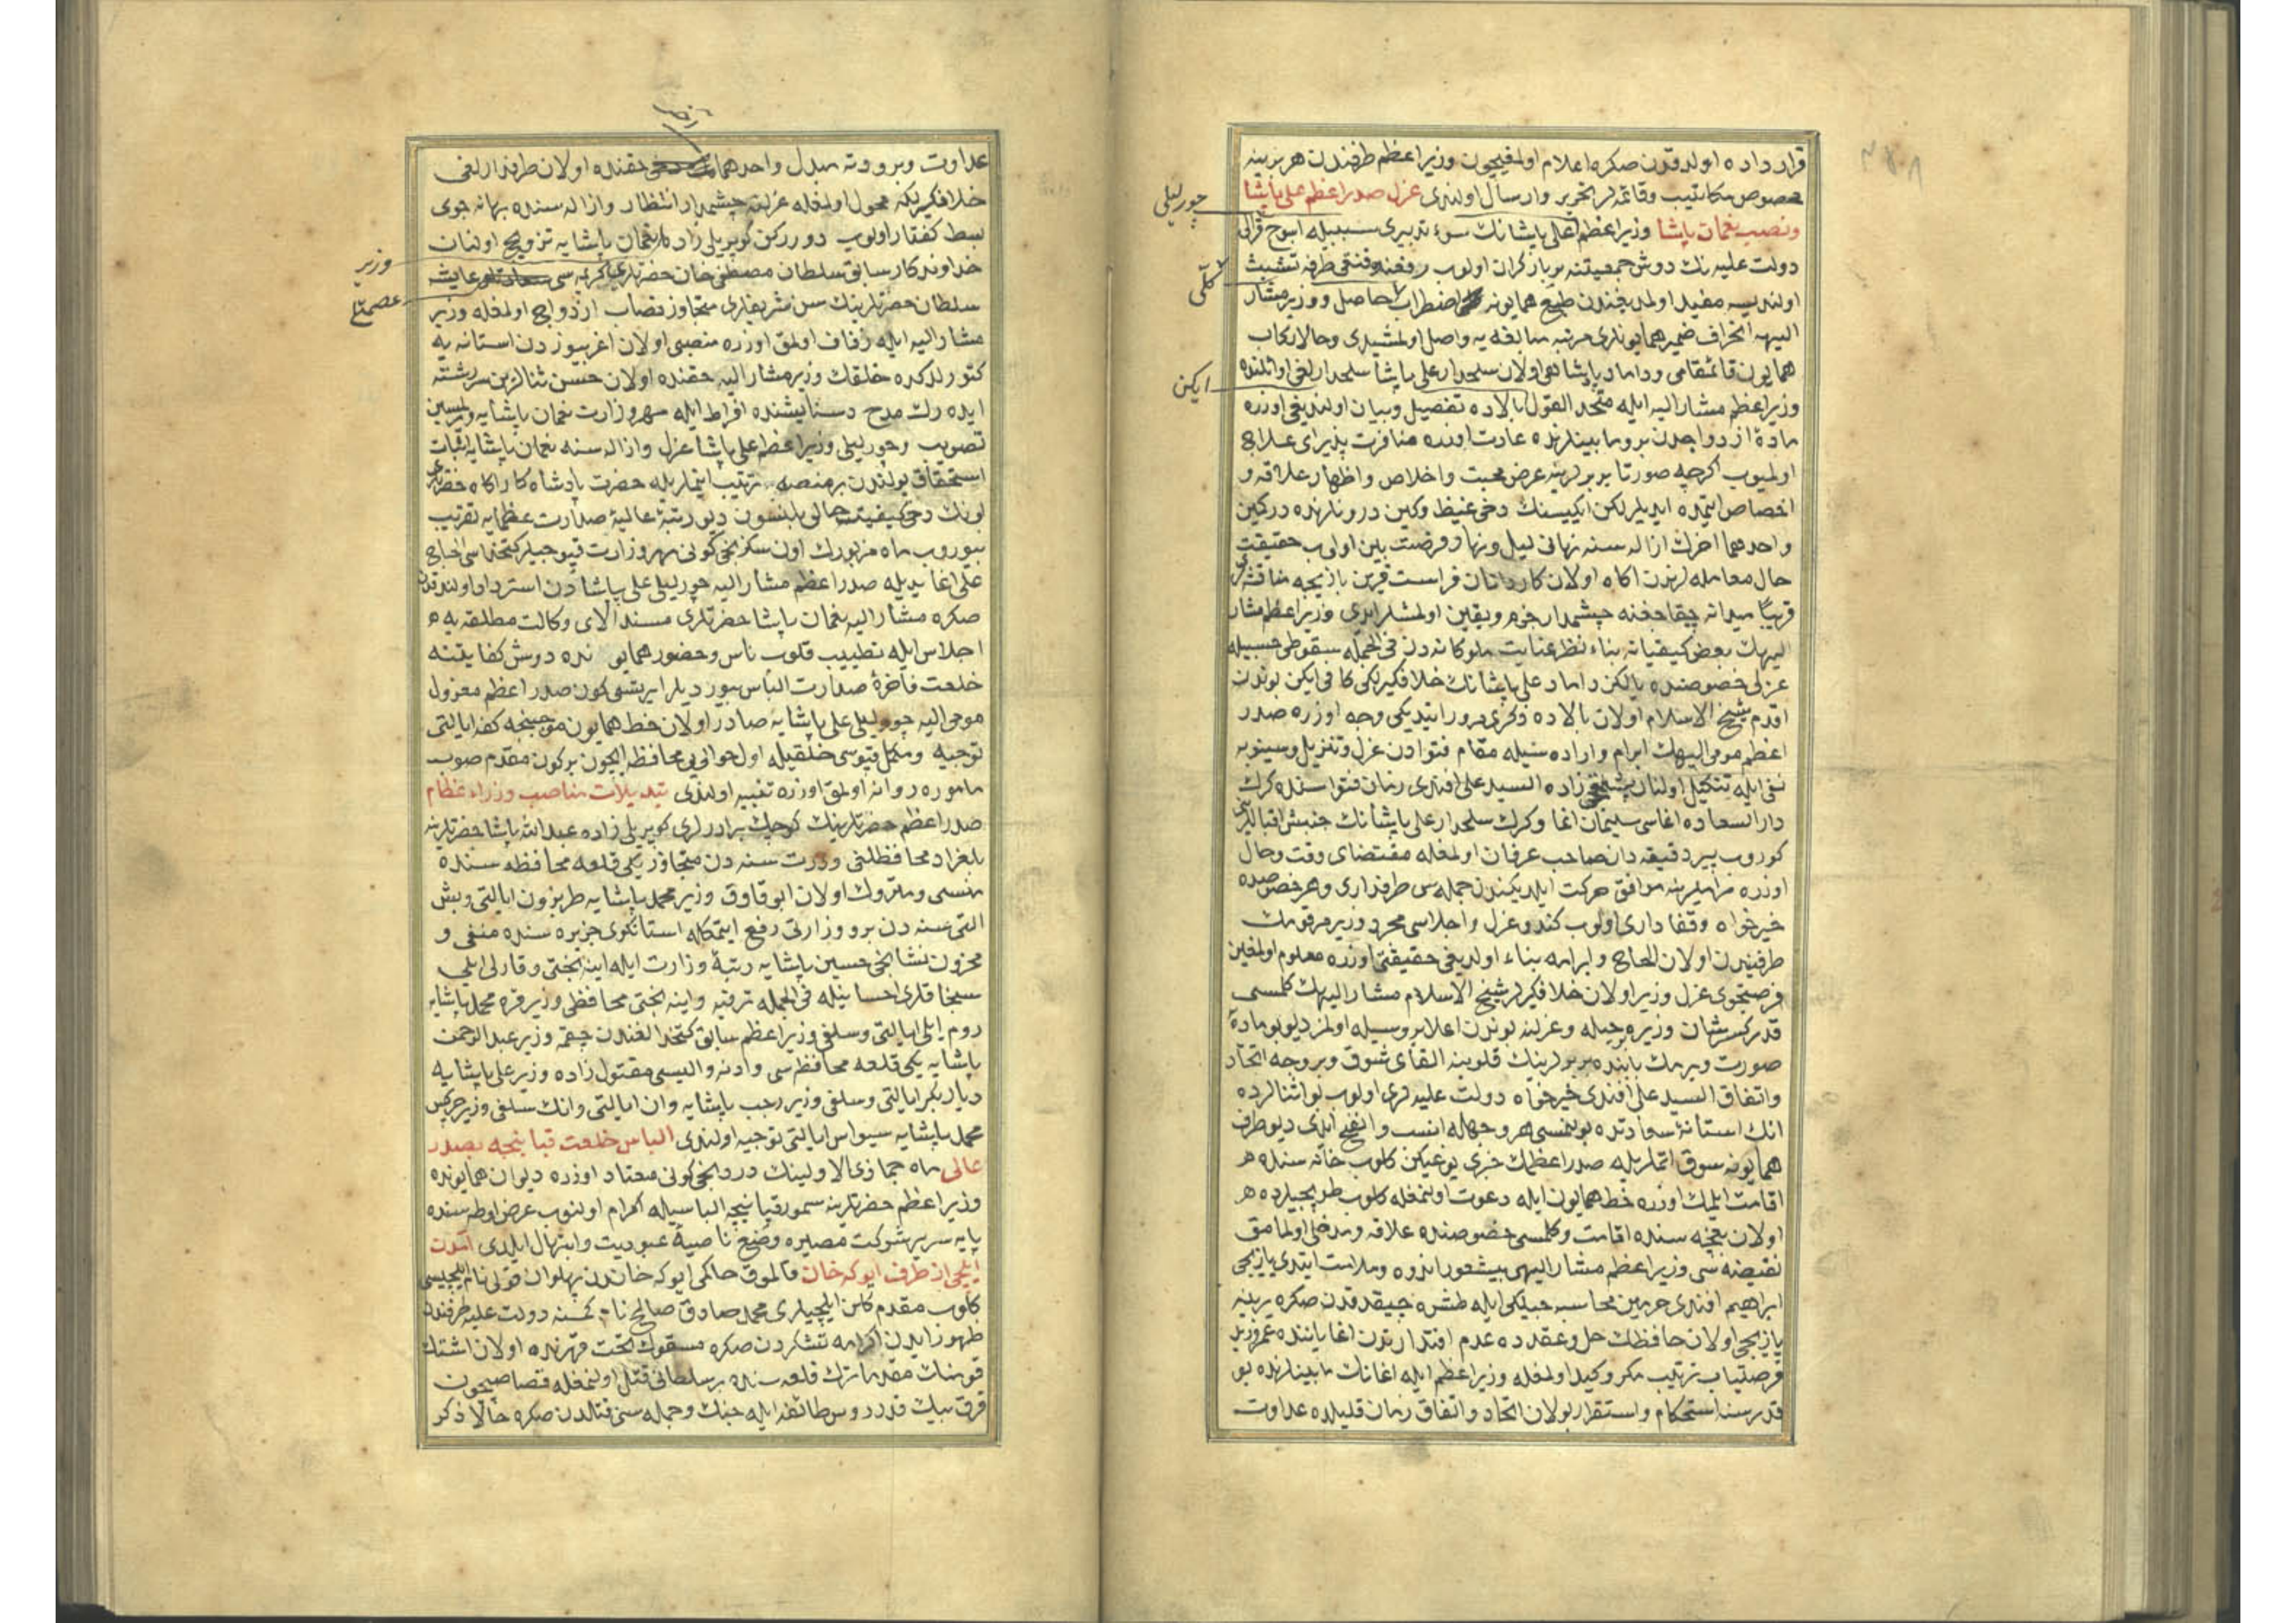 قرارداده اولدقدن صكره اعلام اولنمغیچون وزیراعظم طرفندن هر برینه
مخصوص مكاتیب وقائمه لر تحریر وارسال اولندی عزل صدراعظم علی پاشا
چورلیلی
ونصب نعمان پاشا وزیراعظم علی پاشانك سوء تدبیری سببیله اسوج قرالی
دولت علیه نك دوش جمعیتنه بارگران اولوب رفعنه طرفه تشبث
اولندیسه مفید اولمدیغندن طبع همایونه اضطراب حاصل ووزیر مشار
الیهه انحراف ضمیر همایونلری مرتبه سابقه یه واصل اولمشیدی وحالا ركاب
همایون قائمقامی وداماد پادشاهی اولان سلحدار علی پاشا سلحدارلغی اوائلنده
ایكن
وزیراعظم مشارالیه ایله متحد القول بالاده تفصیل وبیان اولندیغی اوزره
ماده ازدواجدن برو مابینلرنده عادت اوزره منافرت پذیرای علاج
اولمیوب اكرچه صورتا بربرلرینه عرض محبت واخلاص واظهار علاقه و
اختصاص ایتمده ایدیلر لكن ایكیسنك دخی غیظ وكین درونلرنده دركمین
واحدهما اخرك ازاله سنه نهانی لیل ونهار فرصت بین اولوب حقیقت
حال معامله لرندن اكاه اولان كاردانان فراست قرین بازیچه منافشه لری
قریبا میدانه چیقاجغنه چشمدار جزم ویقین اولمشلر ایدی وزیراعظم مشار
الیهك بعض كیفیاته بناء نظر عنایت ملوكانه دن فی الجمله سقوطی حسبیله
عزلی خصوصنده یالكز داماد علی پاشانك خلافكیرلكی كافی ایكن بوندن
اقدم شیخ الاسلام اولان بالاده ذكری مرور ایتدیكی وجه اوزره صدر
اعظم مومی الیهك ابرام واراده سیله مقام فتوادن عزل وتنزیل وسینوبه
نفی ایله تنكیل اولنان پشمقچی زاده السید علی افندی زمان فتواسنده كرك
دارالسعاده اغاسی سلیمان اغا وكرك سلحدار علی پاشانك جنبش اقباللرین
كوروب پیر دقیقه دان صاحب عرفان اولمغله مقتضای وقت وحال
اوزره مراملرینه موافق حركت ایلدیكندن جمله سی طرفداری وهر خصوصده
خیرخواه وقفاداری اولوب كندو عزل واجلاسی مجرد وزیر مرقومك
طرفیندن اولان الحاح وابرامه بناء اولدیغی حقیقتی اوزره معلوم اولمغین
فرصتجوی عزل وزیر اولان خلافكیرلر شیخ الاسلام مشارالیهك كلمسی
قدر كسر شان وزیره حیله وعزلنه بوندن اعلا بر وسیله اولمز دیو بو ماده یه
صورت ویرمك بابنده بربرلرینك قلوبنه القای شوق وبر وجه اتحاد
واتفاق السید علی افندی خیرخواه دولت علیه لری اولوب بو اثنالرده
انك استانه سعادتده بولنمسی هر وجهله انسب وانفع ایدی دیو طرف
همایونه سوق ایتملریله صدراعظمك خبری یوغیكن كلوب خانه سنده
اقامت ایلمك اوزره خط همایون ایله دعوت اولنمغله كلوب طوپچیلرده
اولان باغچه سنده اقامت وكلمسی خصوصنده علاقه ومدخلی اولمامق
نقیضه سی وزیراعظم مشارالیهی بیشعور اندوه وملامت ایتدی یازیجی
ابراهیم افندی حرمین محاسبه جیلكی ایله طشره چیقدقدن صكره یرینه
یازیجی اولان حافظك حل وعقدده عدم اقتدارندن اغا یاننده
فرصتیاب ترتیب مكر وكید اولمغله وزیراعظم ایله اغانك مابینلرنده بو
قدر سنه استحكام واستقرار بولان اتحاد واتفاق زمان قلیلده عداوت
عداوت وبرودته مبدل واحدهما حقنده اولان طرفدارلغی
خلافكیرلكه محول اولمغله عزلنه چشمدار انتظار وازاله سنده بهانه جوی
بسط كفتار اولوب دوررركن كوپریلی زاده نعمان پاشایه تزویج اولنان
وزیر
خداوندكار سابق سلطان مصطفی خان حضرتلری كریمه سی عایشه
سلطان حضرتلرینك سن شریفلری متجاوز نصاب ازدواج اولمغله وزیر
مشارالیه ایله زفاف اولمق اوزره منصبی اولان اغریبوزدن استانه یه
كتورلدكده خلقك وزیر مشارالیه حقنده اولان حسن ثنالرین سررشته
ایده رك مدح وستایشنده افراط ایله مهر وزارت نعمان پاشایه ویرلمسین
تصویب وچورلیلی وزیراعظم علی پاشا عزل وازاله سنه نعمان پاشایه اثبات
استحقاق یولندن بر منصبه ترتیب ایتملریله حضرت پادشاه كاراكاه حضرتلری
بونك دخی كیفیت حالی بلنسون دیو رتبه عالیه صدارت عظمایه تقریب
بیوروب ماه مزبورك اون سكزنجی كونی مهر وزارت قپوجیلر كتخداسی الحاج
علی اغا یدیله صدراعظم مشارالیه چورلیلی علی پاشادن استرداد اولندقدن
صكره مشارالیه نعمان پاشا حضرتلری مسند الای وكالت مطلقه یه
اجلاس ایله تطییب قلوب ناس وحضور همایونده دوش كفایتنه
خلعت فاخره صدارت الباس بیوردیلر ایرتسی كون صدراعظم معزول
مومی الیه چورلیلی علی پاشایه صادر اولان خط همایون موجبنجه كفه ایالتی
توجیه ومكمل قپوسی خلقیله اول حوالیی محافظه ایچون بر كون مقدم صوب
ماموره روانه اولمق اوزره تنبیه اولندی تبدیلات مناصب وزراء عظام
صدراعظم حضرتلرینك كوچك برادرلری كوپریلی زاده عبدالله پاشا حضرتلرینه
بلغراد محافظلغی ودرت سنه دن متجاوز یكی قلعه محافظه سنده
منسی ومتروك اولان ابوقاوق وزیر محمد پاشایه طربزون ایالتی وبش
التی سنه دن برو وزارتی رفع استانكوی جزیره سنده منفی و
محزون نشانجی حسین پاشایه رتبه وزارت ایله اینه بختی وقارلی ایلی
سنجاقلری احسانیله فی الجمله ترفیه واینه بختی محافظی وزیر قره محمد پاشایه
روم ایلی ایالتی وسلفی وزیراعظم سابق كتخدالغندن چقمه وزیر عبدالرحمن
پاشایه یكی قلعه محافظه سی وادنه والیسی مقتول زاده وزیر علی پاشایه
دیاربكر ایالتی وسلفی وزیر رجب پاشایه وان ایالتی وانك سلفی وزیر چركس
محمد پاشایه سیواس ایالتی توجیه اولندی الباس خلعت قبانیچه بصدر
عالی ماه جماذی الاولینك دردنجی كونی معتاد اوزره دیوان همایونده
وزیراعظم حضرتلرینه سمور قپانیچه الباسیله اكرام اولنوب عرض اوطه سنده
پایه سریر شوكت مصیره وضع ناصیه عبودیت وابتهال ایلدی آمدن
ایلچی از طرف ایوكه خان قالموق حاكمی ایوكه خاندن پهلوان قولی نام ایلچیسی
كلوب مقدم كلن ایلچیلری محمد صادق صالح نام كمسنه دولت علیه طرفندن
ظهور ایدن اكرامه تشكردن صكره مسقونك تحت قهرنده اولان اشتك
قومنك مقدما ترك قلعه سنده بر سلطانی قتل اولنمغله قصاصیچون
قرق بیك قدر روس طائفه ایله جنك وجمله سنی قتالدن صكره حالا ذكر